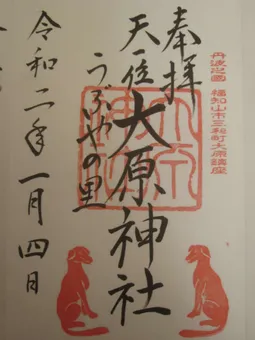 丹波之國 福知山市三和町大原鎮座
奉拝
天一位
大原神社
うぶやの里
令和二年一月四日